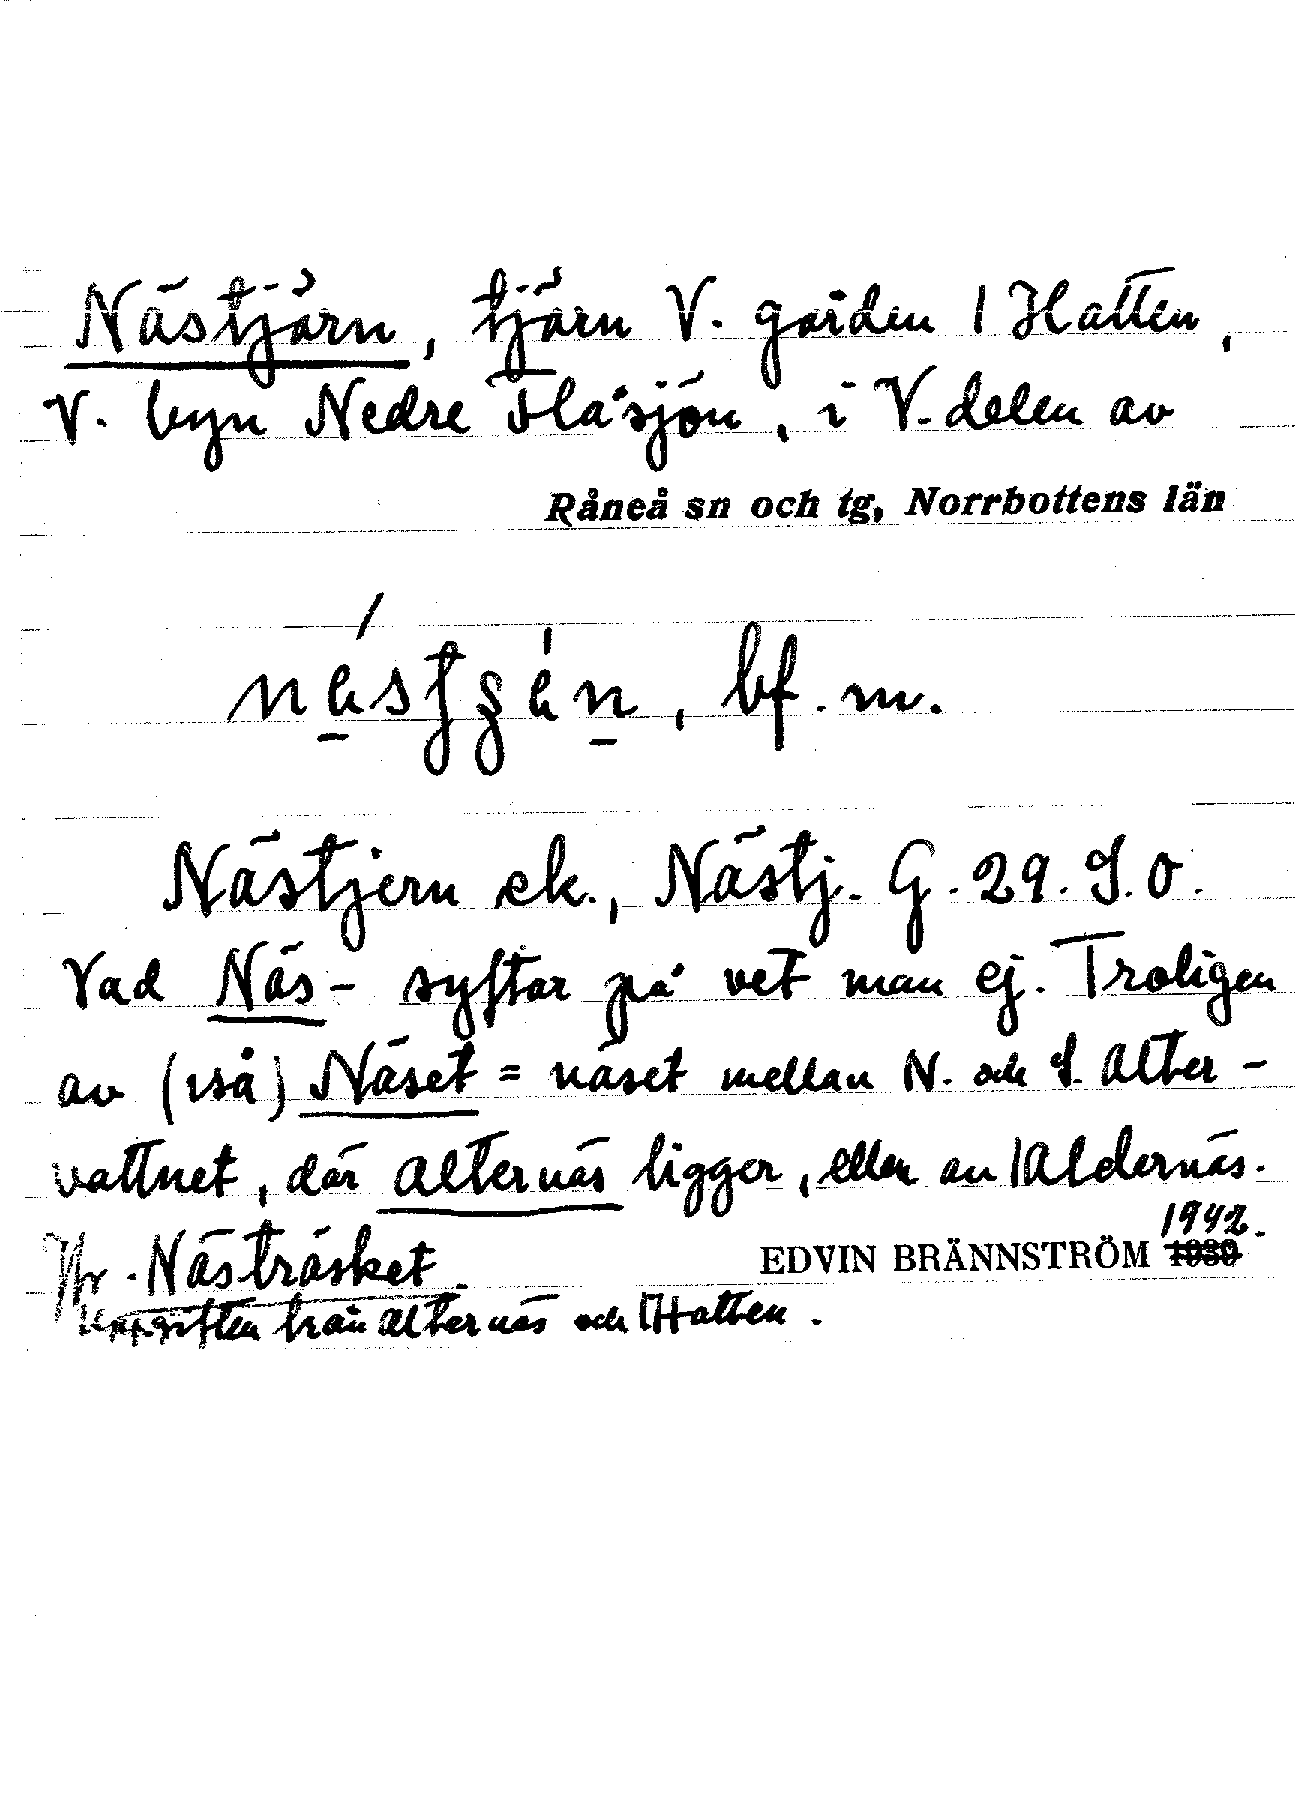 Nästjärn, tjärn V. gården 1 Hatten,
V. byn Nedre Flåsjön, i V. delen av
Råneå sn och tg, Norrbottens län
bf. m.
Nästjern ek., Nästj. G. 29. S.O.
Vad Näs- syftar på vet man ej. Troligen
av (iså) Näset = näset mellan N. och S. Alter-
vattnet, där Alternäs ligger, eller av 1 Aldernäs.
Jfr. Nästräsket.
EDVIN BRÄNNSTRÖM 1942.
Uppgiften från Alternäs och 1 Hatten.